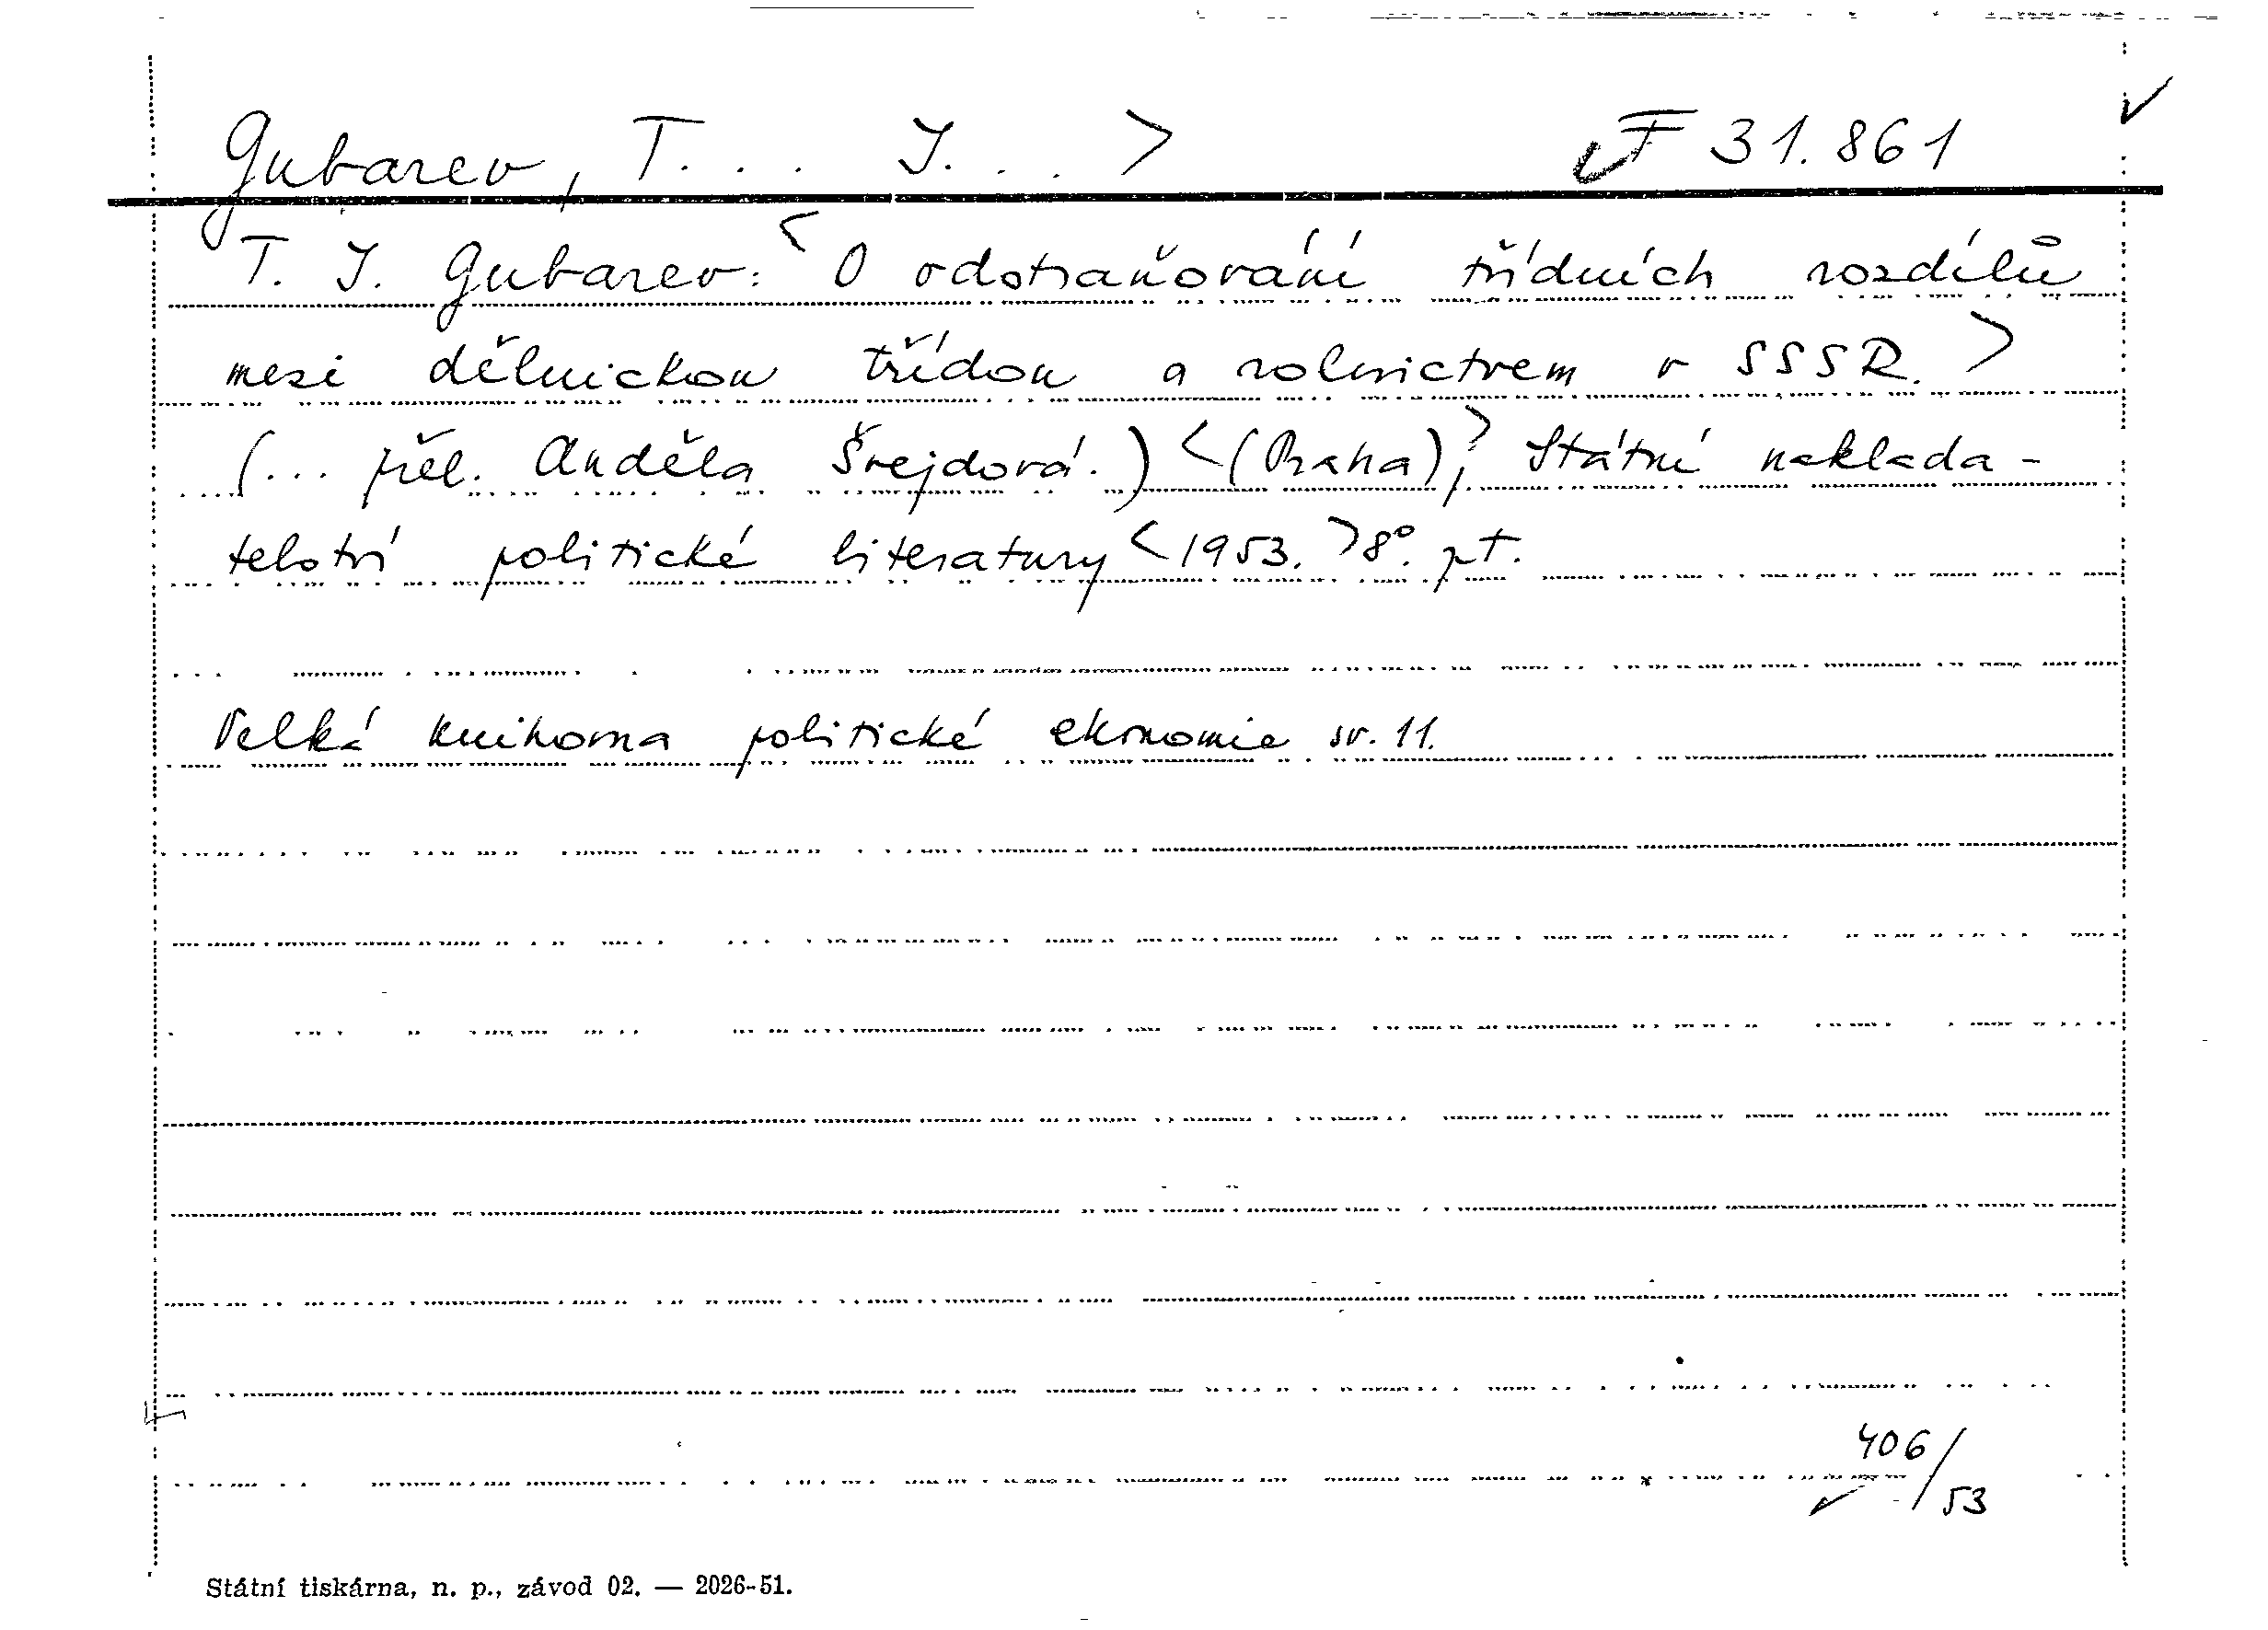 Gubarev, T... J... > F 31.861
T. J. Gubarev: < O odstraňování třídních rozdílů
mezi dělnickou třídou a rolnictvem v SSSR. >
(... přel. Anděla Šrejdová.) < (Praha), > Státní naklada-
telství politické literatury < 1953. > 8°. pt.
Velká knihovna politické ekonomie sv. 11.
406/53
Státní tiskárna, n. p., závod 02. — 2026-51.